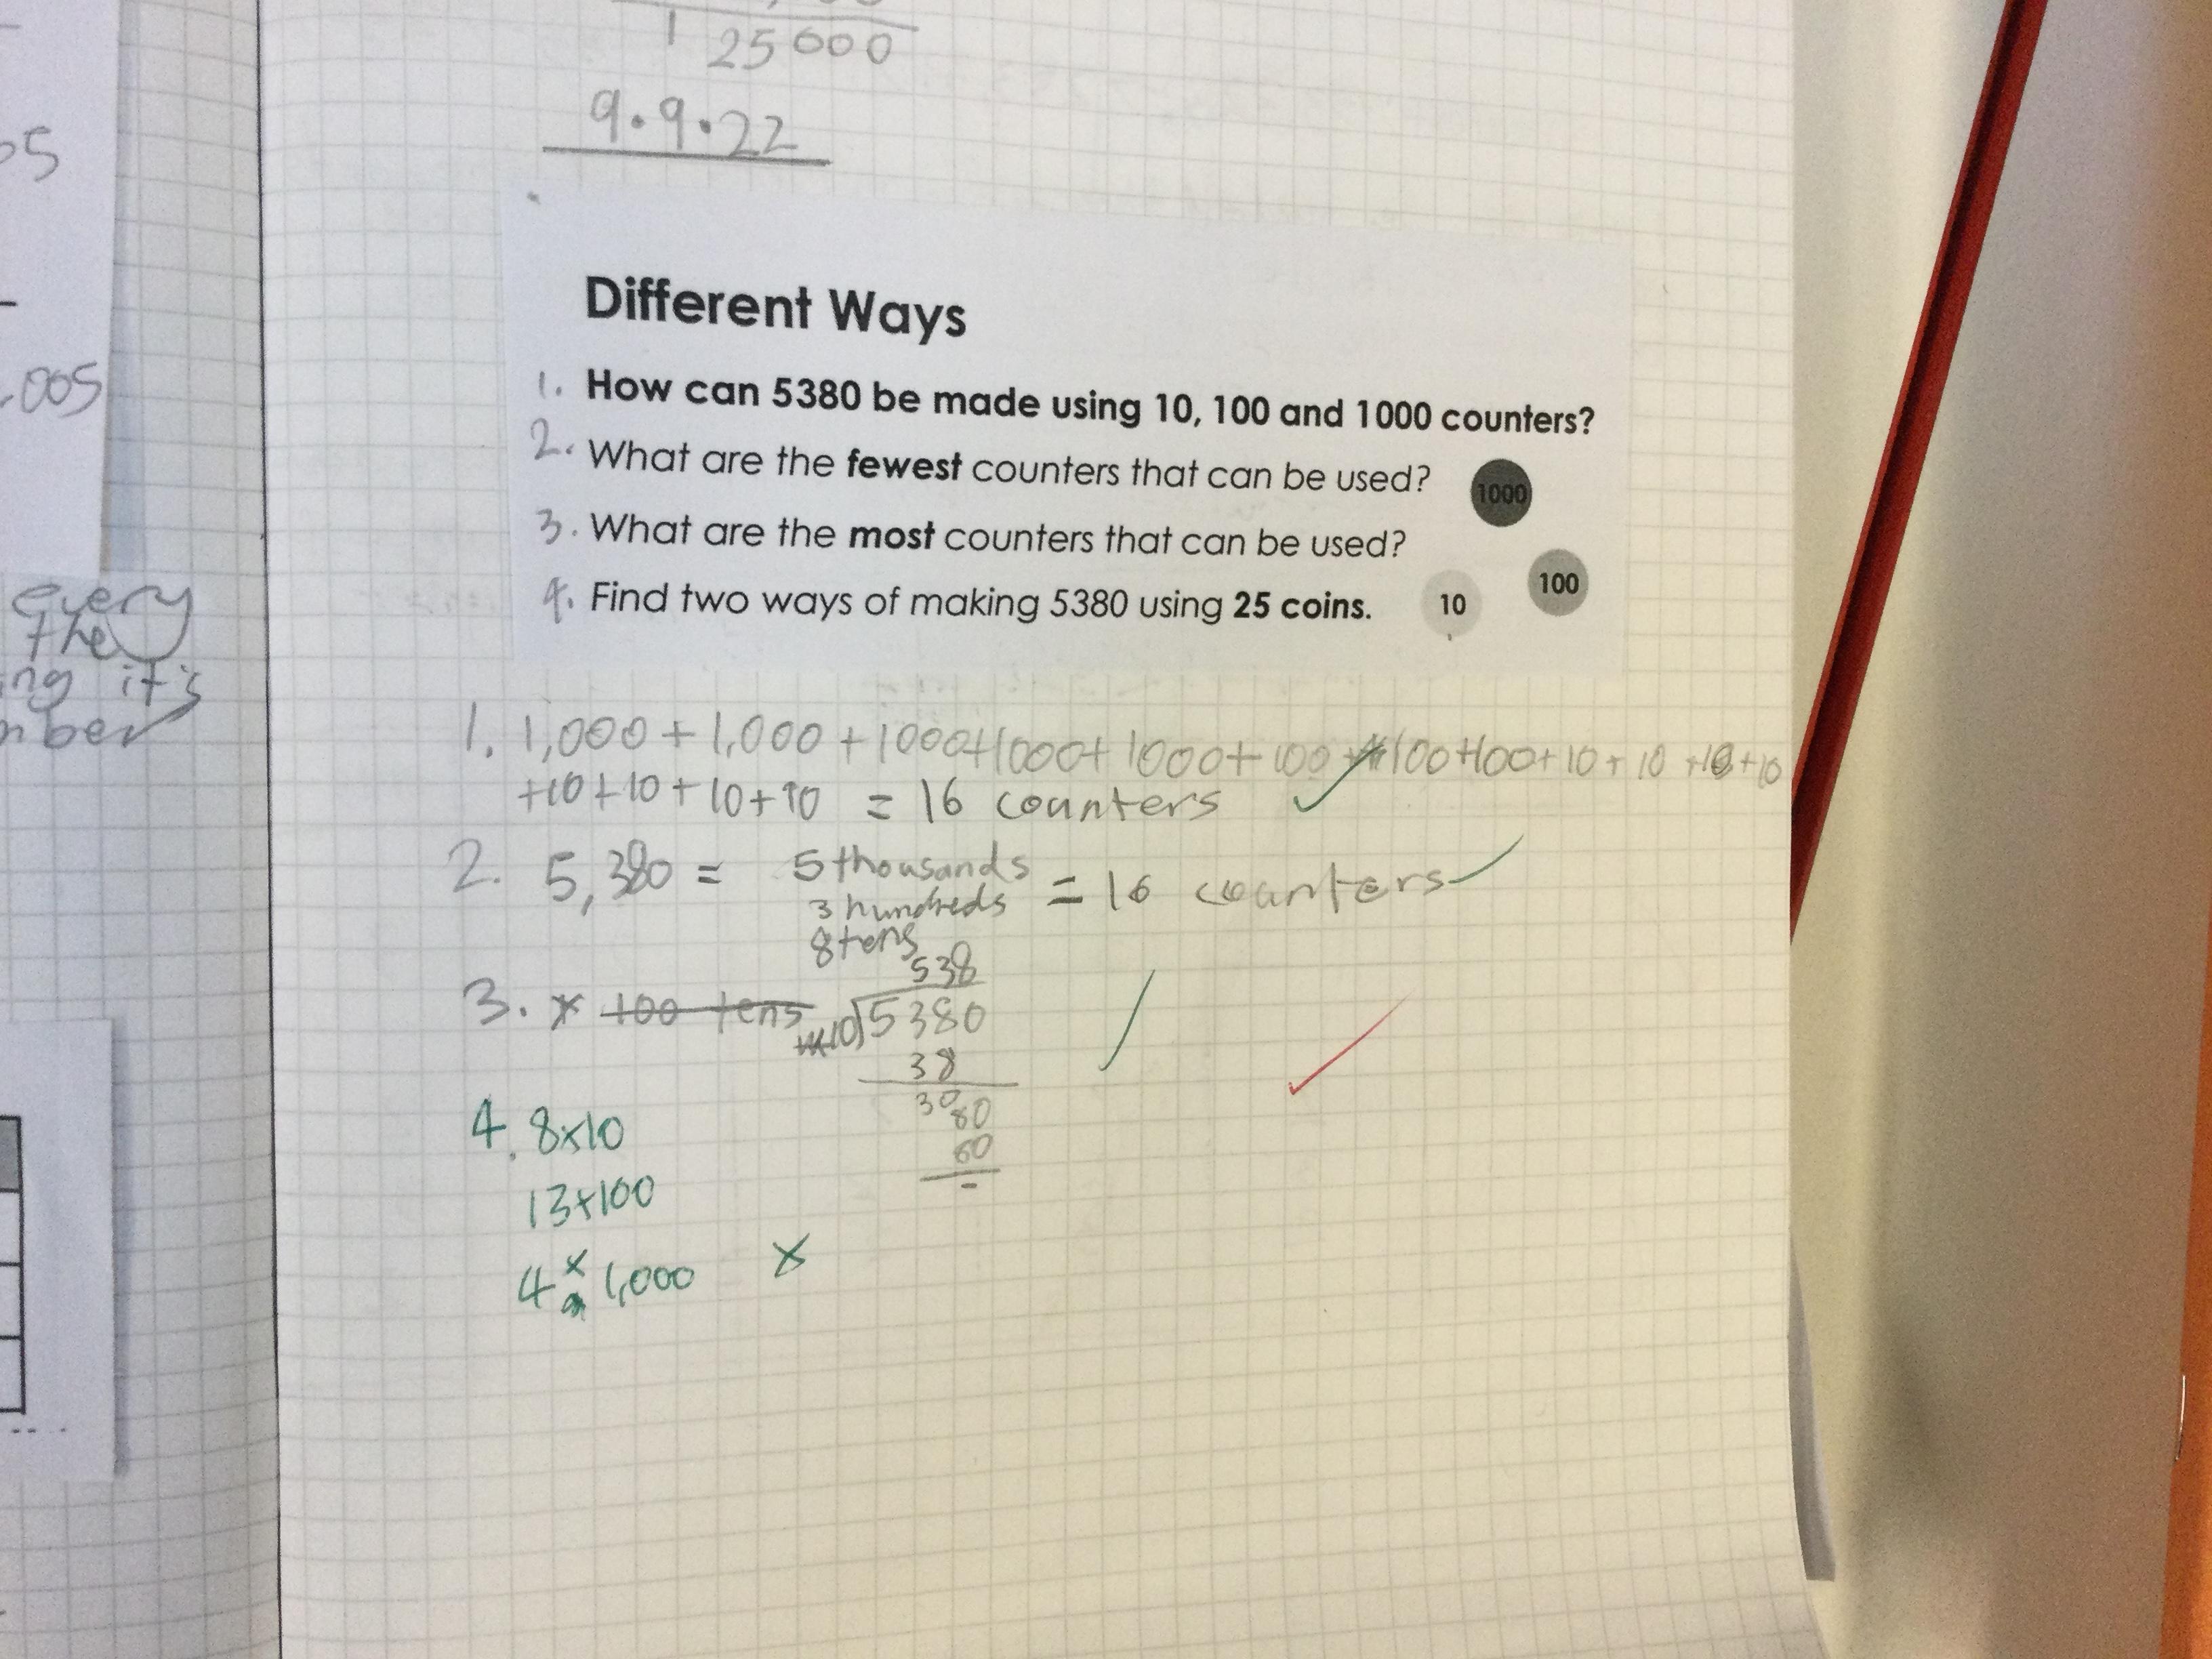 25000
9.9.22
Different Ways
1. How can 5380 be made using 10, 100 and 1000 counters?
2. What are the fewest counters that can be used?
1000
3. What are the most counters that can be used?
100
4. Find two ways of making 5380 using 25 coins.
10
1. 1,000 + 1,000 + 1000+1000+ 1000+ 100 + 100+100+ 10 + 10 +10+10
+10+10+10+10 = 16 counters
2. 5,380 = 5 thousands = 16 counters
3 hundreds
8 tens
538
3. x 100 tens 10)5380
38
3080
60
4. 8x10
13x100
4 x 1,000 x
05
.005
every
the
ng it's
mber